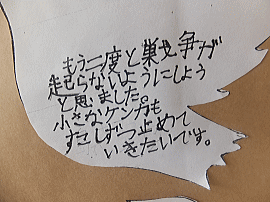 もう二度と戦争が
起らないようにしよう
と思いました。
小さなケンカも
すこしずつ止めて
いきたいです。